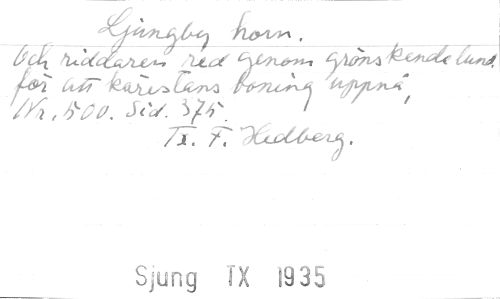 Ljungby horn.
Och riddaren red genom grönskande lund.
för att kärestans boning uppnå,
Nr. 500. Sid. 375.
Tx. F. Hedberg.
Sjung TX 1935